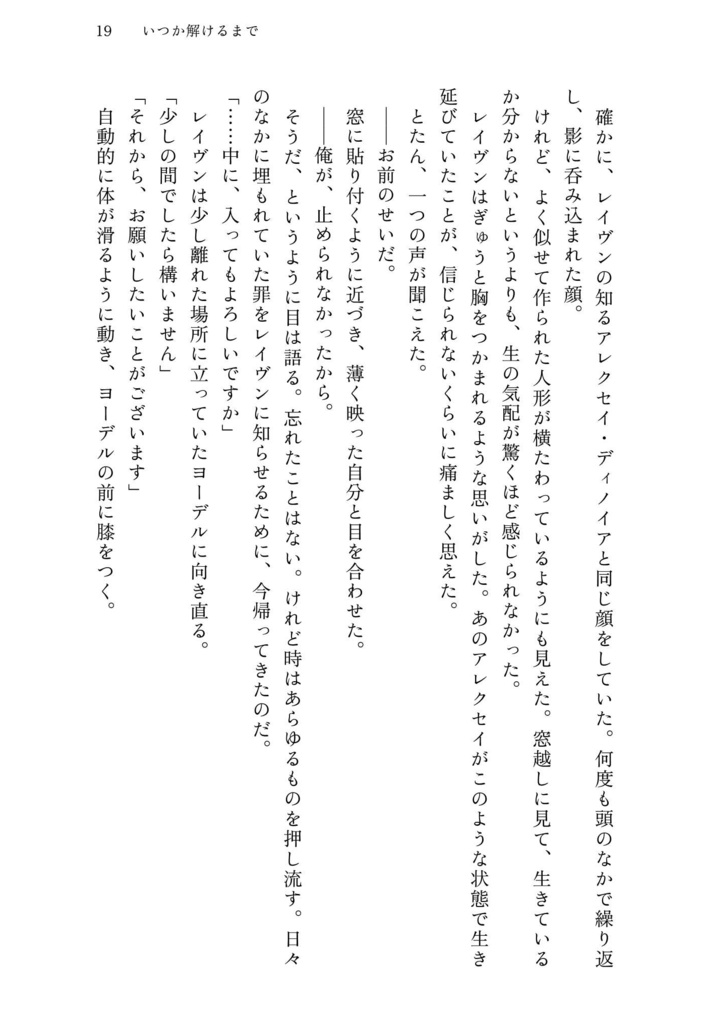 19　いつか解けるまで
　確かに、レイヴンの知るアレクセイ・ディノイアと同じ顔をしていた。何度も頭のなかで繰り返
し、影に呑み込まれた顔。
　けれど、よく似せて作られた人形が横たわっているようにも見えた。窓越しに見て、生きている
か分からないというよりも、生の気配が驚くほど感じられなかった。
　レイヴンはぎゅうと胸をつかまれるような思いがした。あのアレクセイがこのような状態で生き
延びていたことが、信じられないくらいに痛ましく思えた。
　とたん、一つの声が聞こえた。
　――お前のせいだ。
　窓に貼り付くように近づき、薄く映った自分と目を合わせた。
　――俺が、止められなかったから。
　そうだ、というように目は語る。忘れたことはない。けれど時はあらゆるものを押し流す。日々
のなかに埋もれていた罪をレイヴンに知らせるために、今帰ってきたのだ。
「……中に、入ってもよろしいですか」
　レイヴンは少し離れた場所に立っていたヨーデルに向き直る。
「少しの間でしたら構いません」
「それから、お願いしたいことがございます」
　自動的に体が滑るように動き、ヨーデルの前に膝をつく。